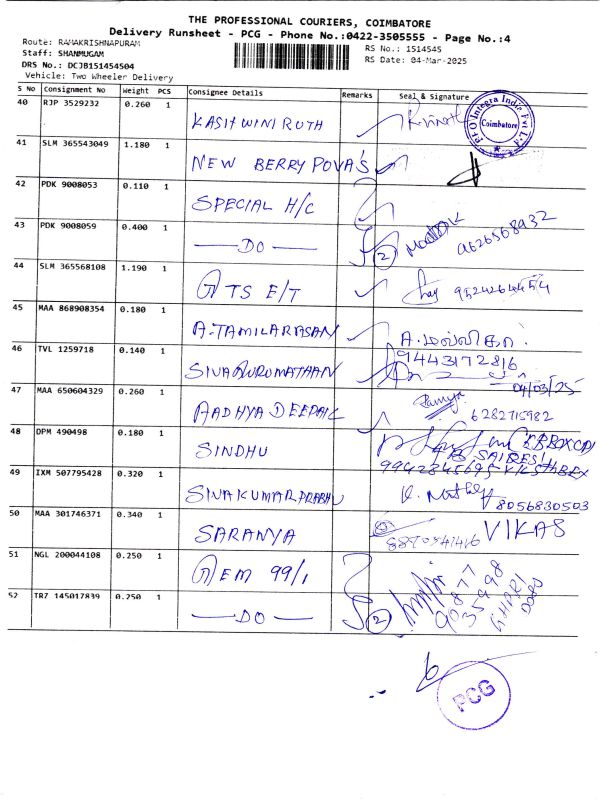 THE PROFESSIONAL COURIERS, COIMBATORE
Delivery Runsheet - PCG - Phone No.:0422-3505555 - Page No.:4
Route: RAMAKRISHNAPURAM
RS No.: 1514545
Staff: SHANMUGAM
RS Date: 04-Mar-2025
DRS No.: DCJB151454504
Vehicle: Two Wheeler Delivery
S No Consignment No Weight PCS Consignee Details Remarks Seal & Signature
40 RJP 3529232 0.260 1
KASHWINI RUTH
Integra India Pvt Ltd
Coimbatore
41 SLM 365543049 1.180 1
NEW BERRY POVA'S
42 PDK 9008053 0.110 1
SPECIAL H/C
43 PDK 9008059 0.400 1
DO 2 9626568932
44 SLM 365568108 1.190 1
GTS E/T
45 MAA 868908354 0.180 1
A.TAMILARASAN A.மல்லிகா
46 TVL 1259718 0.140 1 9443172816
SIVAGURUMATHAN 04/03/25
47 MAA 650604329 0.260 1
AADHYA DEEPAK 6282715982
48 DPM 490498 0.180 1
SINDHU
49 IXM 507795428 0.320 1
SIVAKUMAR PRABHU 8056830503
50 MAA 301746371 0.340 1
SARANYA VIKAS
51 NGL 200044108 0.250 1
GEM 99/1
52 TR7 145017839 0.250 1
DO 2 90877 35998
PCG